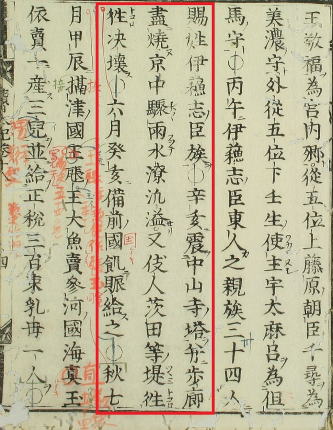 王敬福為宮内卿從五位上藤原朝臣千尋為
美濃守外從五位下壬生使主宇太麿呂為但
馬守○丙午伊蘓志臣東人之親族三十四人
賜姓伊蘓志臣族○辛亥震中山寺塔并歩廊
盡燒京中驟雨水潦汎溢又伎人茨田等堤往
往决壞○六月癸亥備前國飢賑給之○秋七
月甲辰攝津國王應王大魚賣參河國海真玉
依賣一産三兒並給正税三百束乳母一人○